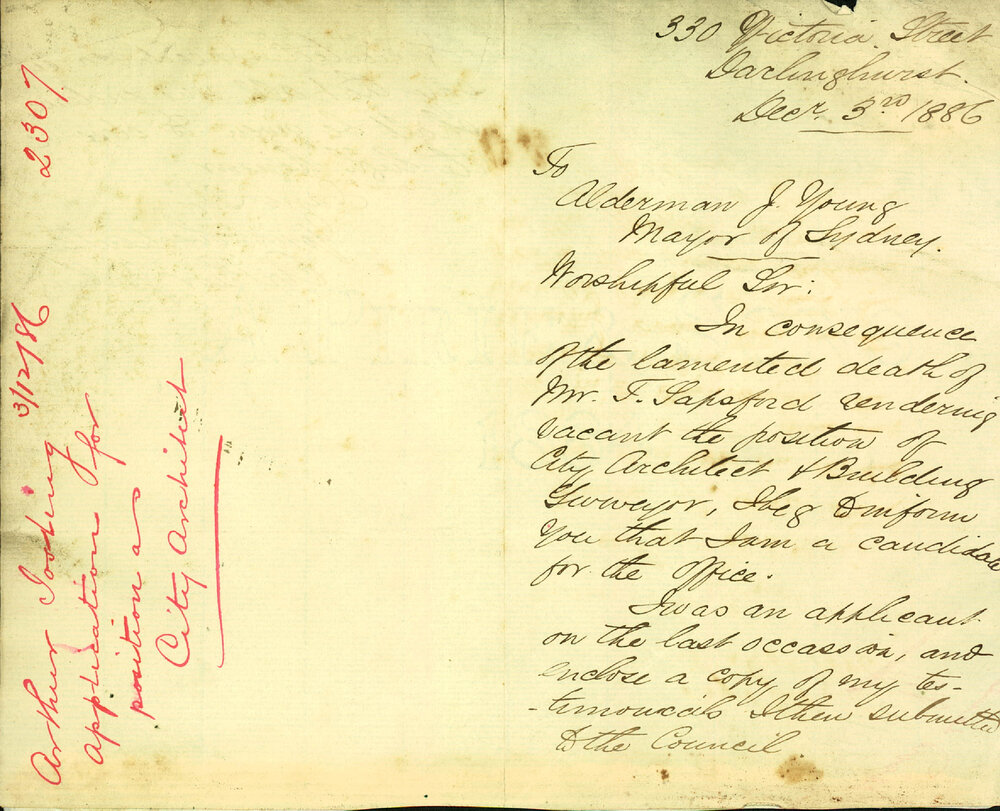 2307
Arthur Tooting 3/12/86
Application for
position as
City Architect
330 Victoria Street
Darlinghurst.
Decr. 3rd 1886
To
Alderman J. Young
Mayor of Sydney.
Worshipful Sir:
In consequence
of the lamented death of
Mr. F. Sapsford rendering
vacant the position of
City Architect & Building
Surveyor, I beg to inform
you that I am a candidate
for the office.
I was an applicant
on the last occassion, and
enclose a copy of my tes-
-timonials I then submitted
to the Council